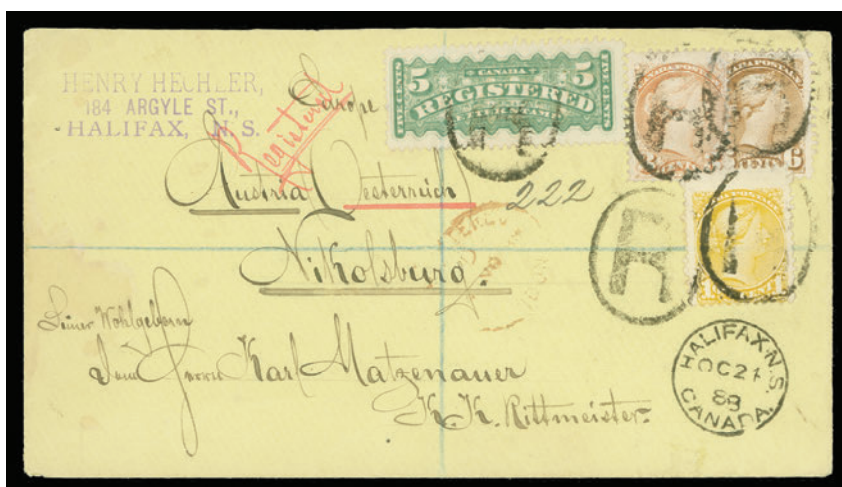 HENRY HECHLER,
184 ARGYLE ST.,
HALIFAX, N. S.
Registered
Europe
CANADA
5 REGISTERED 5
FIVE CENTS
FIVE CENTS
6
Austria Oesterreich
222
Nikolsburg.
R
1
Seiner Wohlgeborn
dem Herrn Karl Matzenauer
K. K. Rittmeister.
HALIFAX. N.S.
OC 21
88
CANADA.